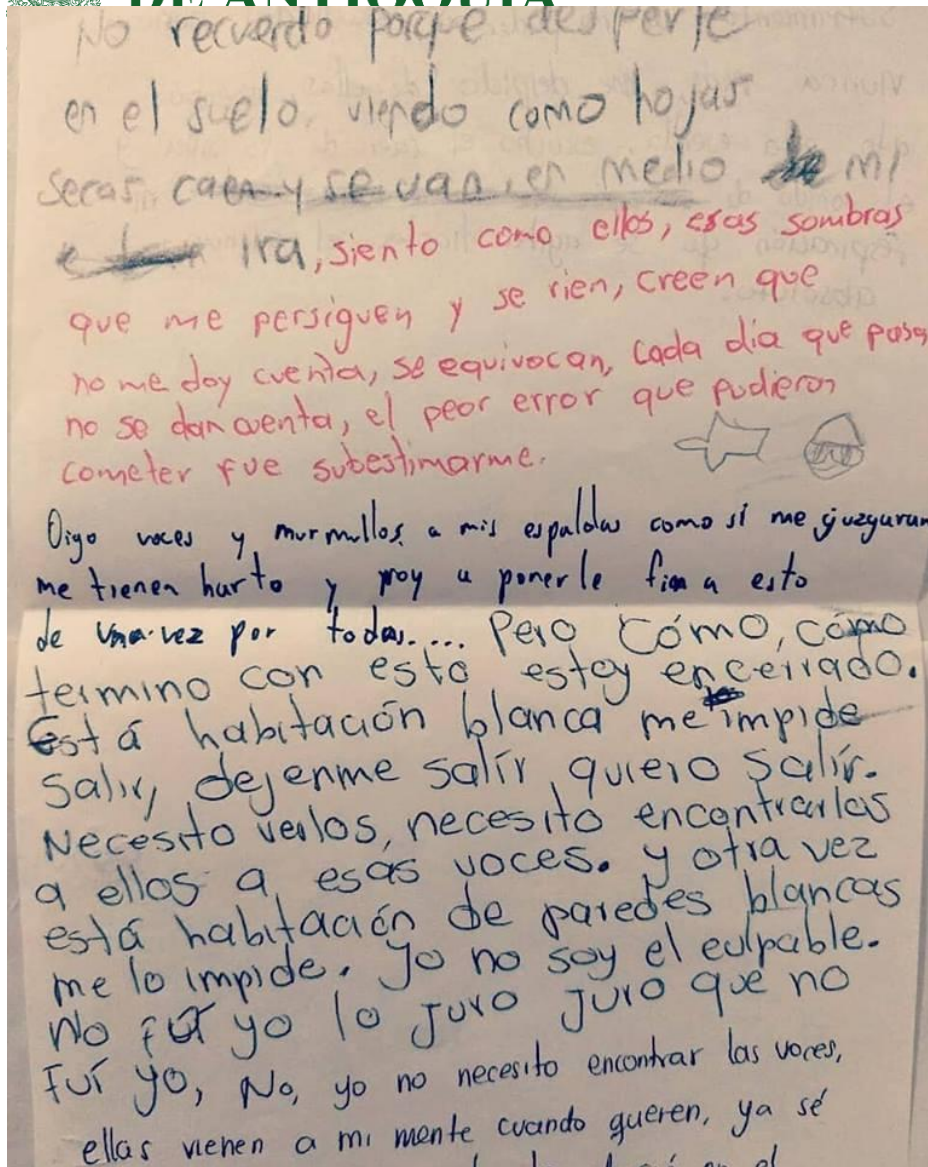 DE ANTIOQUIA
No recuerdo porque desperte
en el suelo, viendo como hojas
secas caen y se van, en medio de mi
ira, siento como ellos, esas sombras
que me persiguen y se rien, creen que
no me doy cuenta, se equivocan, cada dia que pasa
no se dan cuenta, el peor error que pudieron
cometer fue subestimarme.
Oigo voces y murmullos a mis espaldas como si me juzguran
me tienen harto y voy a ponerle fin a esto
de una vez por todas.... Pero cómo, cómo
termino con esto estoy encerrado.
Está habitación blanca me impide
salir, dejenme salir, quiero salir.
Necesito verlos, necesito encontrarlos
a ellos a esas voces. y otra vez
está habitación de paredes blancas
me lo impide. Yo no soy el culpable.
No fuí yo lo juro juro que no
fuí yo, No, yo no necesito encontrar las voces,
ellas vienen a mi mente cuando queren, ya sé